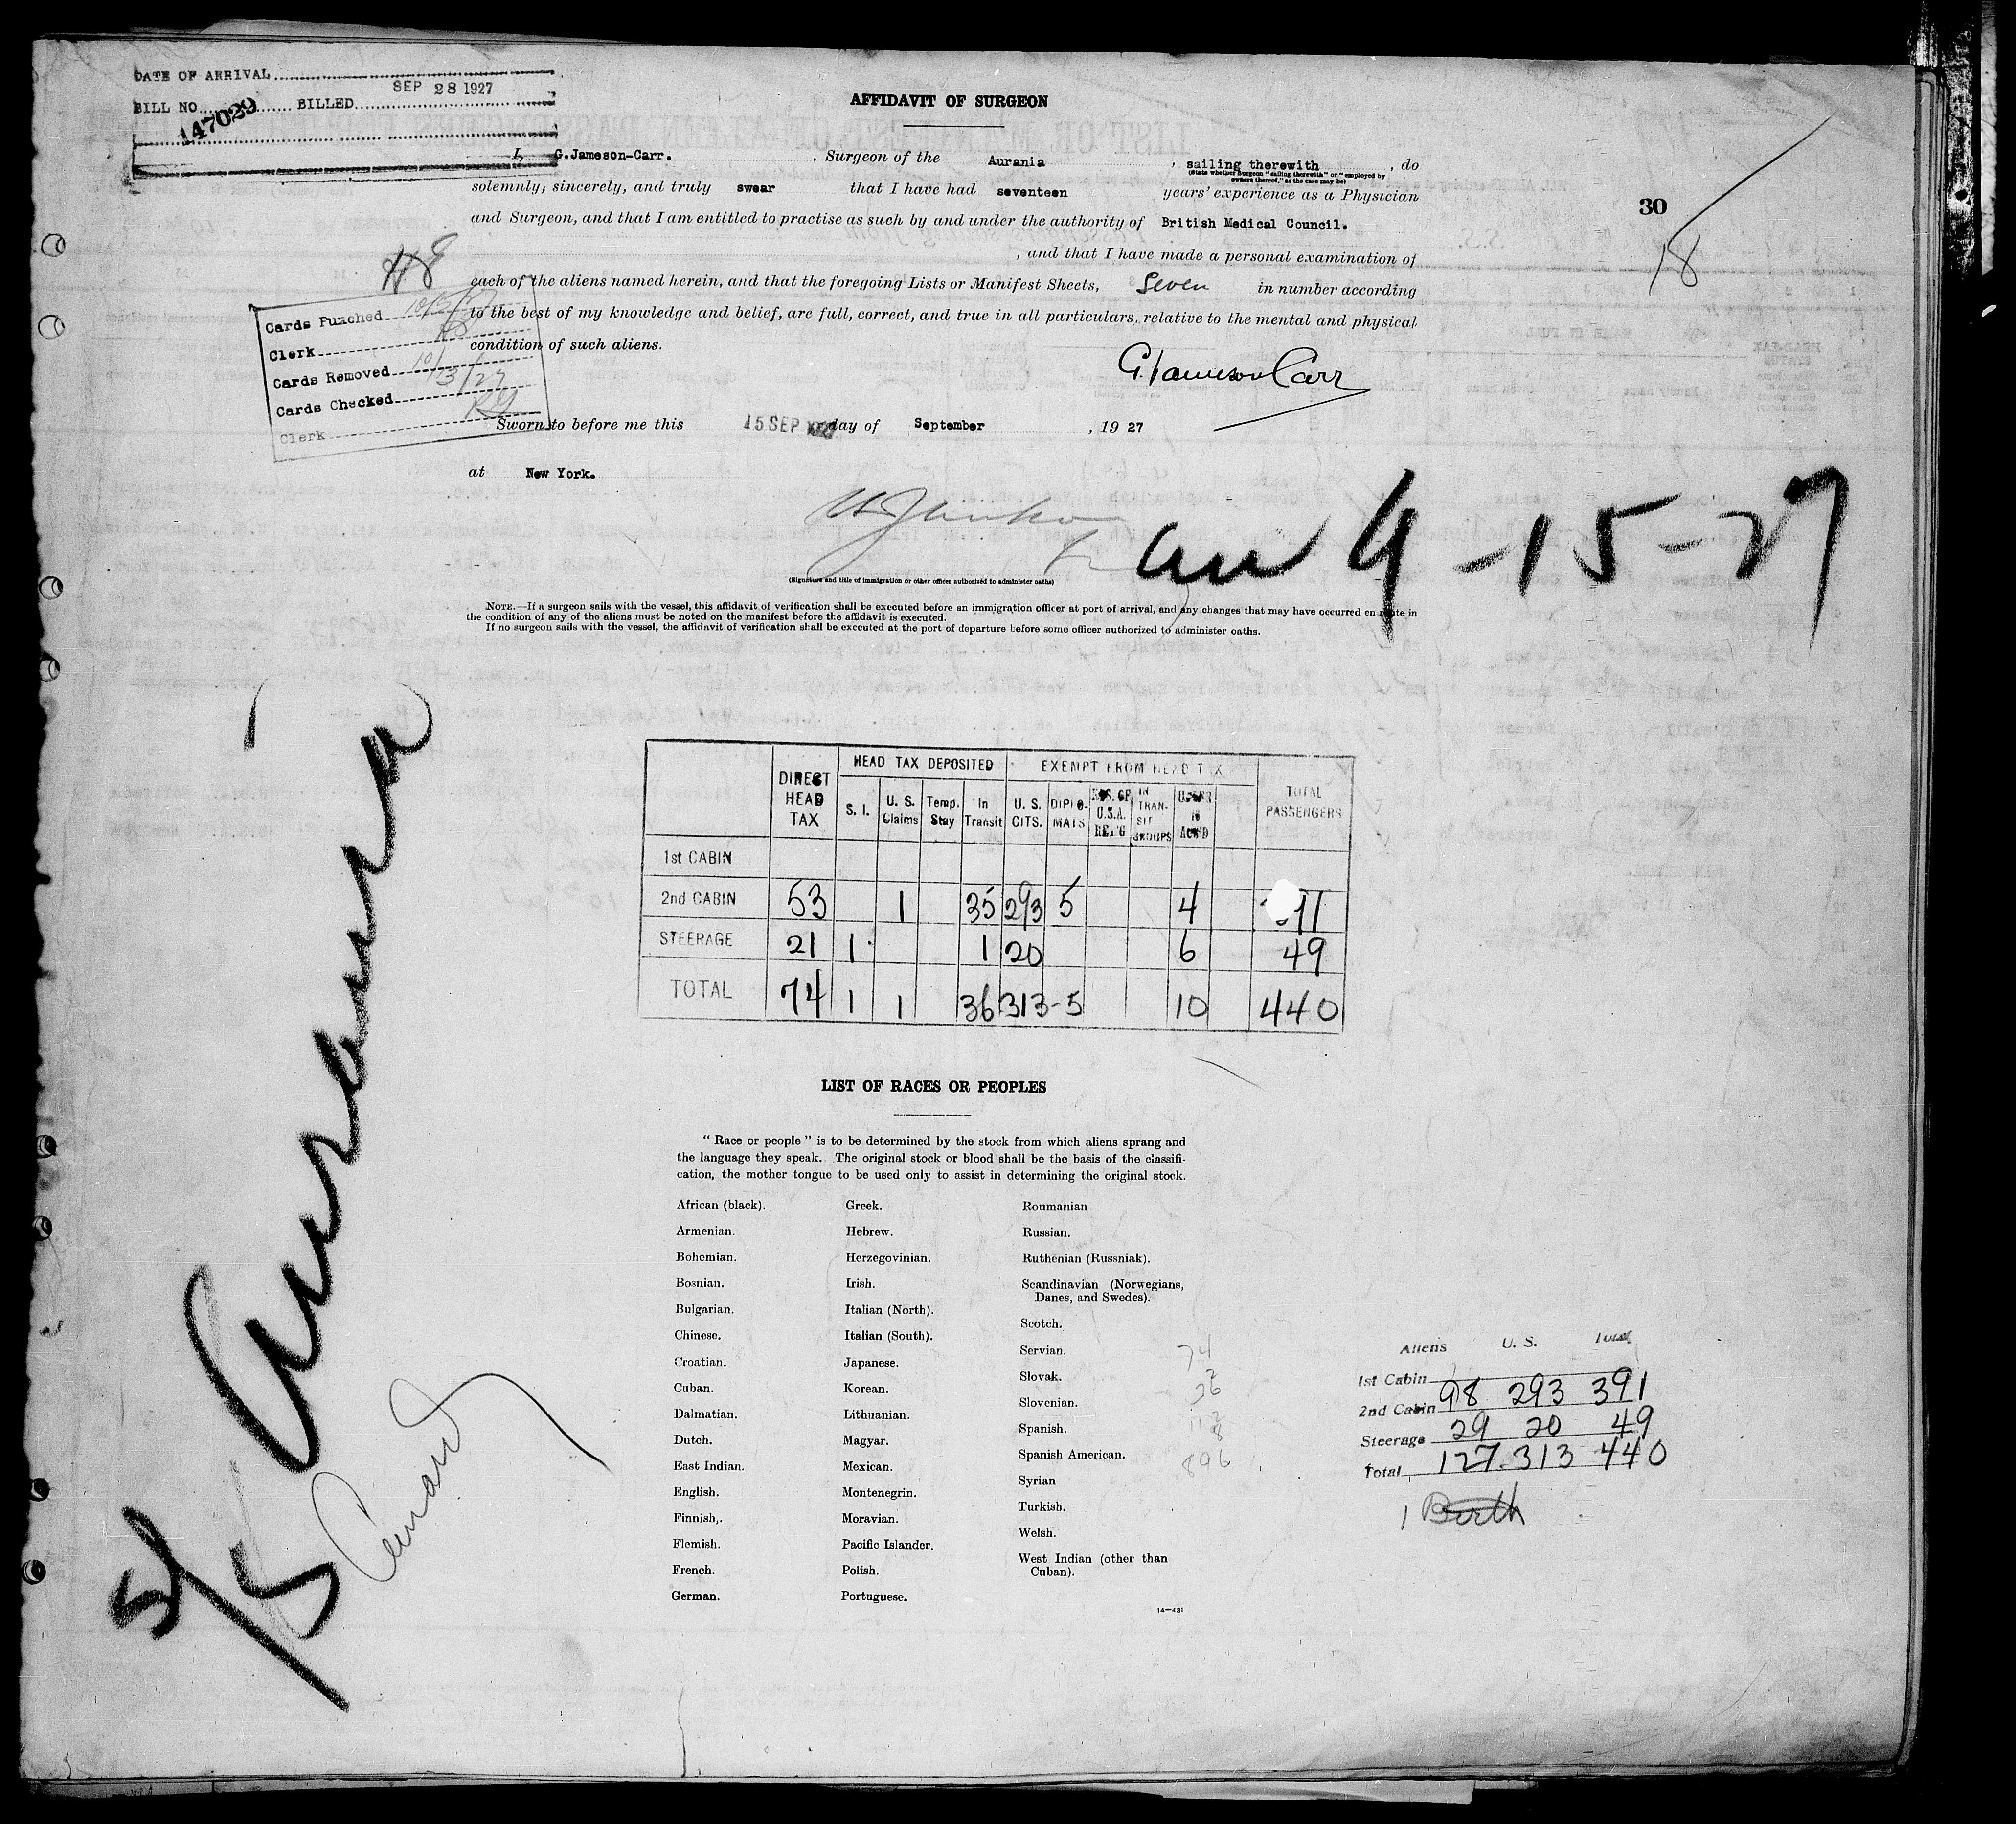 DATE OF ARRIVAL
SEP 28 1927
BILL NO. 147029 BILLED
AFFIDAVIT OF SURGEON
I, G.Jameson-Carr. , Surgeon of the Aurania , sailing therewith , do
(State whether Surgeon "sailing therewith" or "employed by owners thereof," as the case may be)
solemnly, sincerely, and truly swear that I have had seventeen years' experience as a Physician
and Surgeon, and that I am entitled to practise as such by and under the authority of British Medical Council.
, and that I have made a personal examination of
each of the aliens named herein, and that the foregoing Lists or Manifest Sheets, Seven in number according
to the best of my knowledge and belief, are full, correct, and true in all particulars, relative to the mental and physical
condition of such aliens.
30
18
Cards Punched
Clerk
Cards Removed 10/3/27
Cards Checked
Clerk
G. Jameson Carr
Sworn to before me this 15 SEP day of September , 19 27
at New York.
9-15-27
(Signature and title of immigration or other officer authorized to administer oaths)
NOTE.—If a surgeon sails with the vessel, this affidavit of verification shall be executed before an immigration officer at port of arrival, and any changes that may have occurred en route in
the condition of any of the aliens must be noted on the manifest before the affidavit is executed.
If no surgeon sails with the vessel, the affidavit of verification shall be executed at the port of departure before some officer authorized to administer oaths.
DIRECT HEAD TAX
HEAD TAX DEPOSITED
EXEMPT FROM HEAD TAX
TOTAL PASSENGERS
S. I. U. S. Claims Temp. Stay In Transit U. S. CITS. DIPLOMATS RES. OF U.S.A. RET'G IN TRANSIT GROUPS UNDER 16 ACC'D
1st CABIN
2nd CABIN 53 1 35 293 5 4 391
STEERAGE 21 1 1 20 6 49
TOTAL 74 1 1 36 313 5 10 440
LIST OF RACES OR PEOPLES
"Race or people" is to be determined by the stock from which aliens sprang and
the language they speak. The original stock or blood shall be the basis of the classifi-
cation, the mother tongue to be used only to assist in determining the original stock.
African (black).
Armenian.
Bohemian.
Bosnian.
Bulgarian.
Chinese.
Croatian.
Cuban.
Dalmatian.
Dutch.
East Indian.
English.
Finnish,.
Flemish.
French.
German.
Greek.
Hebrew.
Herzegovinian.
Irish.
Italian (North).
Italian (South).
Japanese.
Korean.
Lithuanian.
Magyar.
Mexican.
Montenegrin.
Moravian.
Pacific Islander.
Polish.
Portuguese.
Roumanian
Russian.
Ruthenian (Russniak).
Scandinavian (Norwegians,
Danes, and Swedes).
Scotch.
Servian.
Slovak.
Slovenian.
Spanish.
Spanish American.
Syrian
Turkish.
Welsh.
West Indian (other than
Cuban).
14—431
74
2
36
112
8
896
Aliens U. S. Total
1st Cabin
2nd Cabin 98 293 391
Steerage 29 20 49
Total 127 313 440
1 Birth
S/S Aurania
Cunard